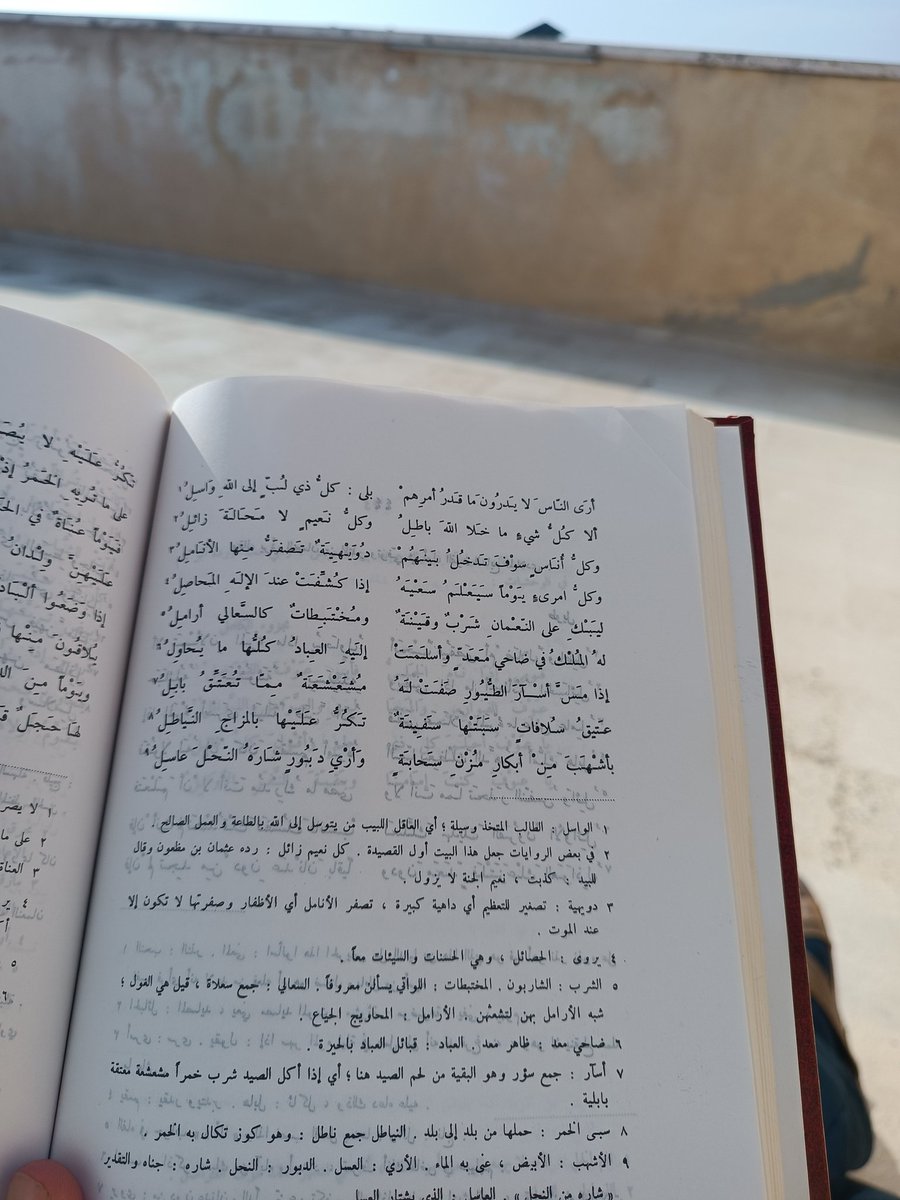 أرَى النّاسَ لا يَدرُونَ ما قَدرُ أمرِهمْ بلى : كلُّ ذي لُبٍّ إلى اللهِ وَاسِلُ١
ألا كُلُّ شيءٍ ما خَلا اللهَ باطِلُ وكلُّ نَعيمٍ لا مَحَالَةَ زائِلُ٢
وكلُّ أُناسٍ سوْفَ تَدخُلُ بَيْنَهُمْ دُوَيْهِيَةٌ تَصفَرُّ مِنها الأنَامِلُ٣
وكلُّ امرىءٍ يَوْماً سَيَعْلَمُ سَعْيَهُ إذا كُشِّفَتْ عندَ الإلَهِ المَحاصِلُ٤
لِيَبْكِ على النّعْمانِ شَرْبٌ وقَيْنَةٌ ومُخْتَبِطاتٌ كالسّعالي أرامِلُ٥
لهُ المُلْكُ في ضاحي مَعَدٍّ وأسلَمَتْ إلَيهِ العِبادُ كُلُّها ما يُحاوِلُ٦
إذا مَسَّ أسْآرَ الطّيُورِ صَفَتْ لَهُ مُشَعْشَعَةٌ مِمّا تُعَتِّقُ بابِلُ٧
عَتيقُ سُلافاتٍ سَبَتْها سَفينَةٌ تَكُرُّ عَلَيْها بالمِزاجِ النَّياطِلُ٨
بأشْهَبَ مِنْ أبكارِ مُزْنِ سَحابَةٍ وَأرْيِ دَبُورٍ شَارَهُ النّحْلَ عاسِلُ٩
١ الواسل : الطالب المتخذ وسيلة ؛ أي العاقل اللبيب من يتوسل إلى الله بالطاعة والعمل الصالح .
٢ في بعض الروايات جعل هذا البيت أول القصيدة . كل نعيم زائل : رده عثمان بن مظعون وقال
للبيد : كذبت ، نعيم الجنة لا يزول .
٣ دويهية : تصغير للتعظيم أي داهية كبيرة ، تصفر الأنامل أي الأظفار وصفرتها لا تكون إلا
عند الموت .
٤ يروى : الحصائل ، وهي الحسنات والسيئات معاً .
٥ الشرب : الشاربون . المختبطات : اللواتي يسألن معروفاً . السعالي : جمع سعلاة ، قيل هي الغول ؛
شبه الأرامل بهن لتشعثهن . الأرامل : المحاويج الجياع .
٦ ضاحي معد : ظاهر معد . العباد : قبائل العباد بالحيرة .
٧ أسآر : جمع سؤر وهو البقية من لحم الصيد هنا ؛ أي إذا أكل الصيد شرب خمراً مشعشعة معتقة
بابلية .
٨ سبى الخمر : حملها من بلد إلى بلد . النياطل جمع ناطل : وهو كوز تكال به الخمر .
٩ الأشهب : الأبيض ، عنى به الماء . الأري : العسل . الدبور : النحل . شاره : جناه والتقدير
« شاره من النحل » . العاسل : الذي يشتار العسل